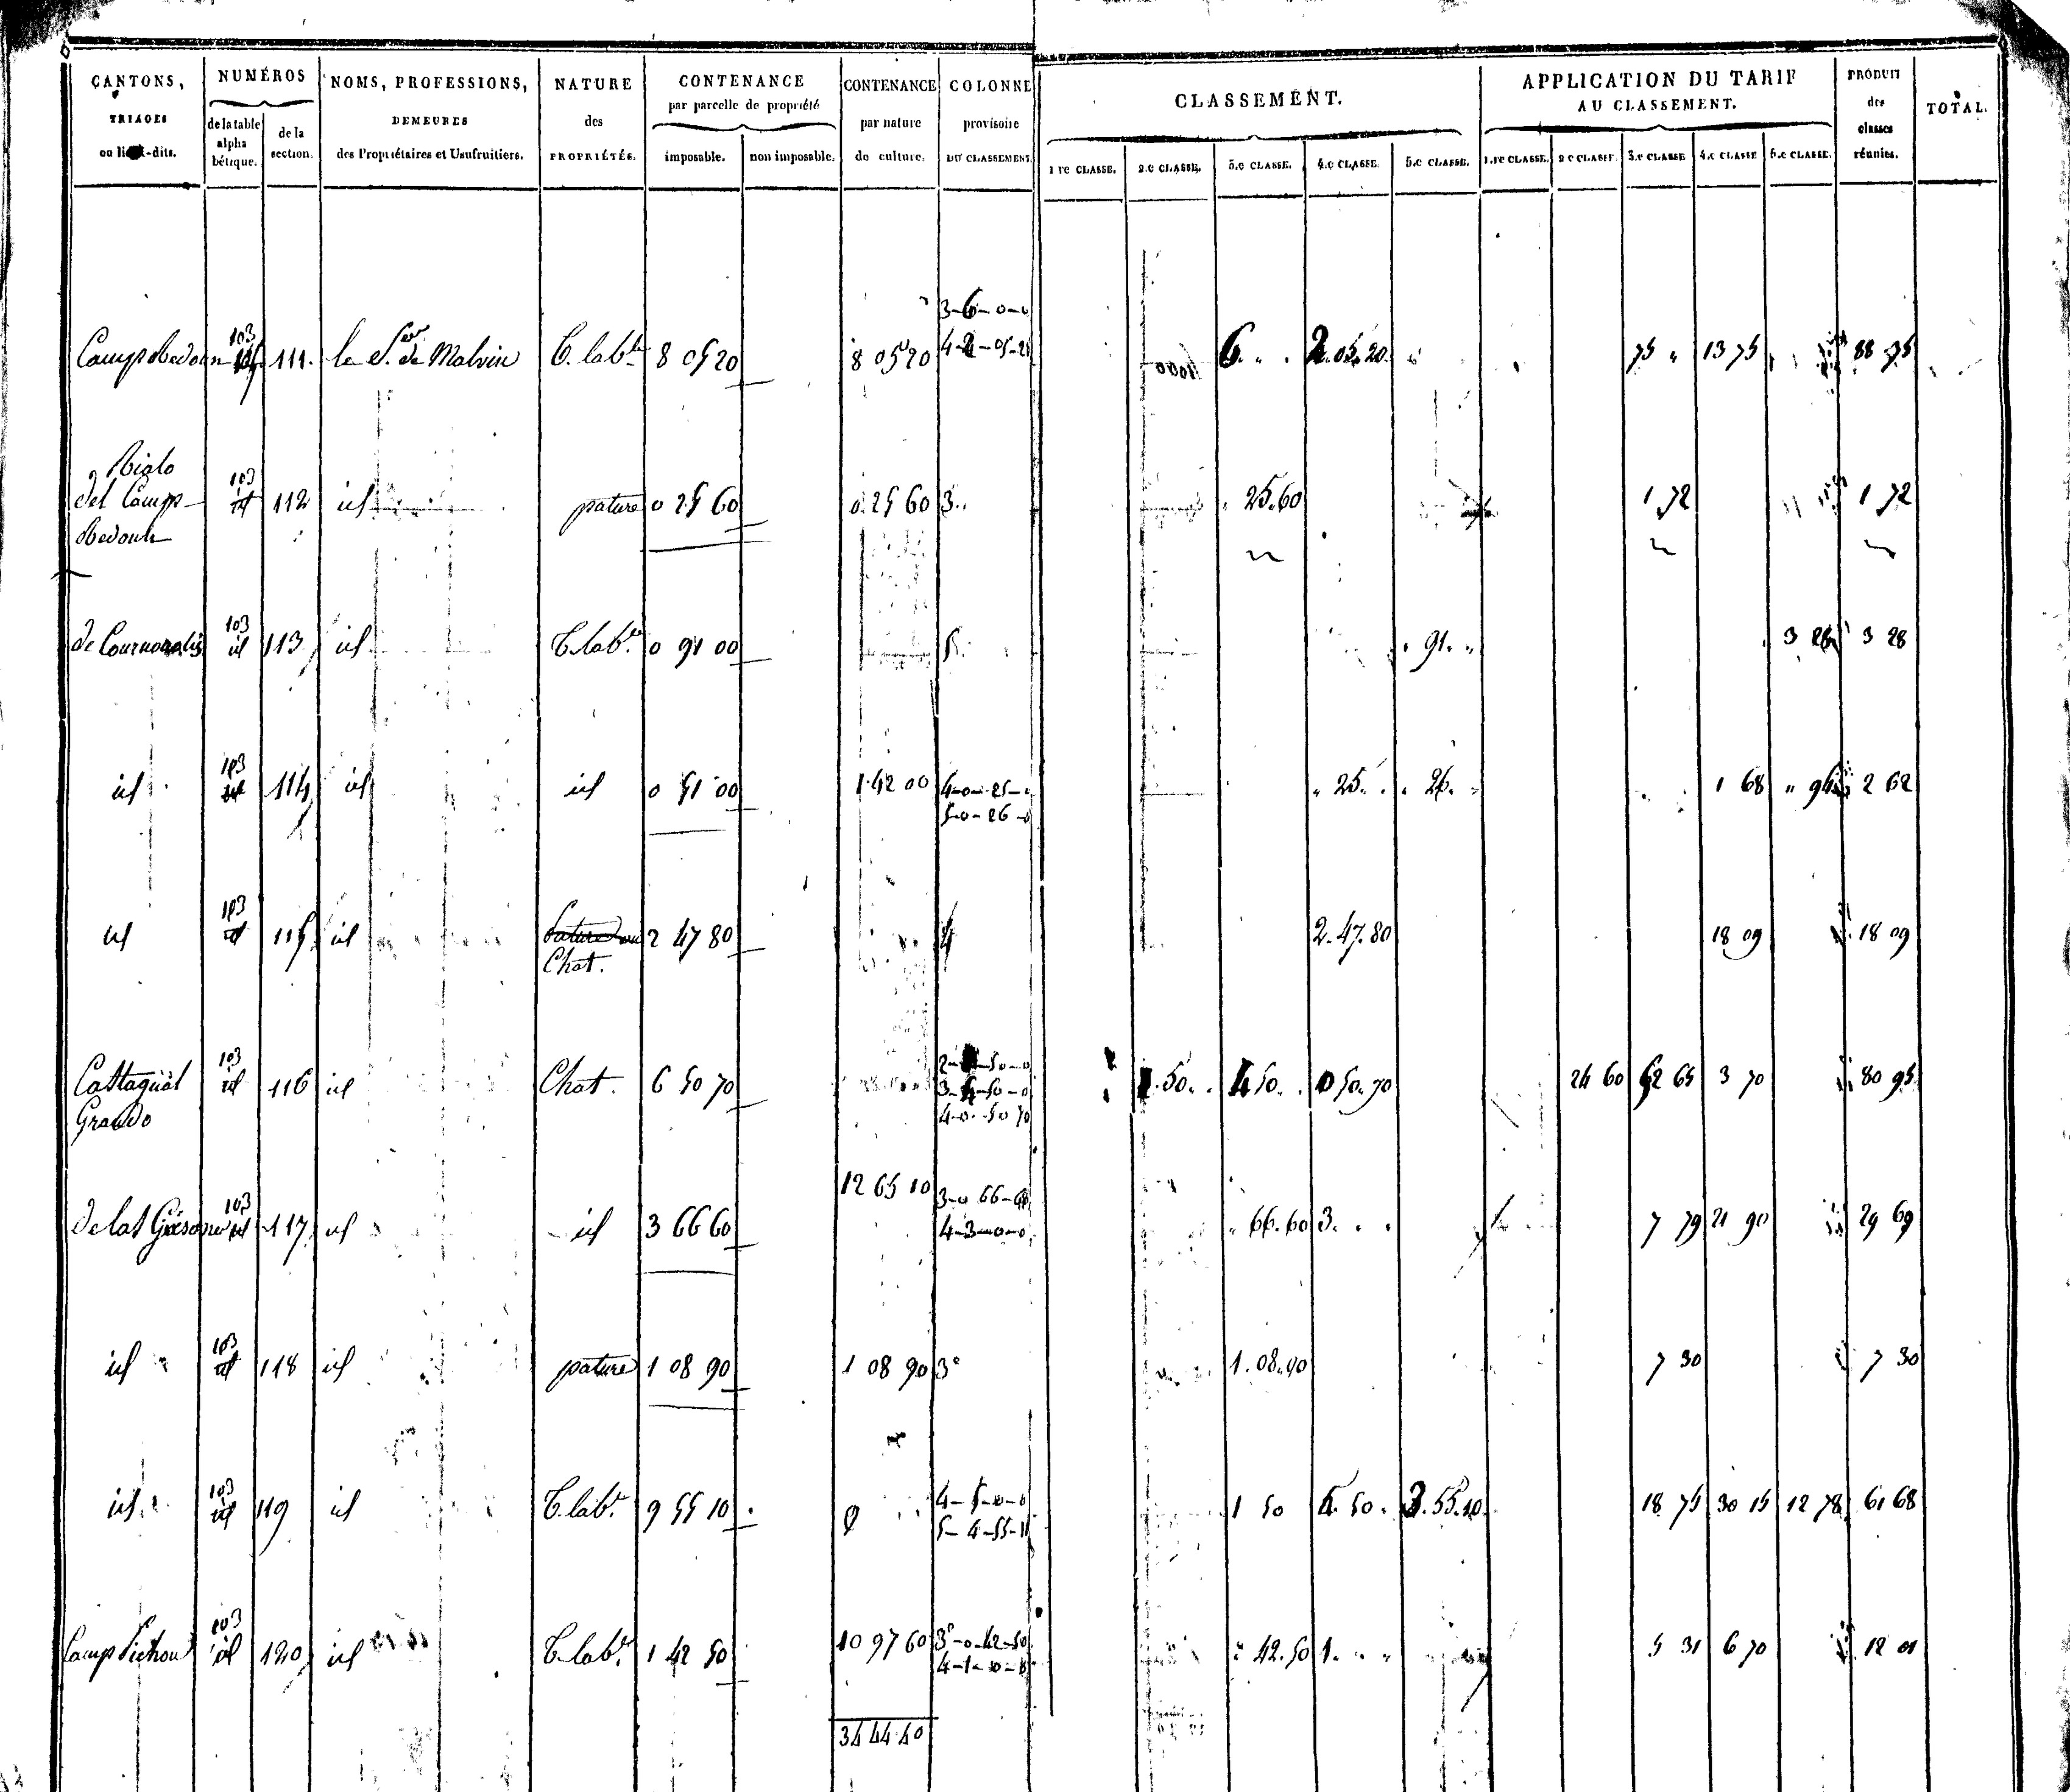 CANTONS, TRIAGES ou lieux-dits. | NUMÉROS de la table alphabétique. | de la section. | NOMS, PROFESSIONS, DEMEURES des Propriétaires et Usufruitiers. | NATURE des PROPRIÉTÉS. | CONTENANCE par parcelle de propriété imposable. | non imposable. | CONTENANCE par nature de culture. | COLONNE provisoire DU CLASSEMENT. | CLASSEMENT. 1re CLASSE. | 2.e CLASSE. | 3.e CLASSE. | 4.e CLASSE. | 5.e CLASSE. | APPLICATION DU TARIF AU CLASSEMENT. 1.re CLASSE. | 2.e CLASSE. | 3.e CLASSE | 4.e CLASSE | 5.e CLASSE. | PRODUIT des classes réunies. | TOTAL.
3-6-0-0
103
111. le S.r de Malvin T. lab.le 8 05 20 8 05 20 4-2-05-20 6. " . 2.05.20. 75 " 13 75 88 75
103
del Camp- id 112 id pature 0 25 60 0 25 60 3.. . 25.60 1 72 1 72
103
id 113 id T. lab.le 0 91 00 5. . 91. " 3 28 3 28
103
id id 114 id id 0 51 00 1.42 00 4-0-25-0 " 25. . . 26. " 1 68 " 94 2 62
5-0-26-0
103
id id 115 id Chat. 2 47 80 4 2.47.80 18 09 18 09
103
Castagnal id 116 id Chat. 6 50 70 1.50. . 4 50. . 0 50.70 24 60 52 65 3 70 80 95
Grando 4-0-50 70
103 12 65 10 3-0 66-60
id 117 id id 3 66 60 4-3-0-0 " 66.60 3. . . 7 79 21 90 29 69
103
id id 118 id pature 1 08 90 1 08 90 3e 1.08.90 7 30 7 30
103 4-5-0-0
id id 119 id T. lab.le 9 55 10 5-4-55-10 1 50 4.50. 3.55.10. 18 75 30 15 12 78 61 68
103
Camp id 120 id T. lab.le 1 42 50 10 97 60 3e-0-42-50 " 42.50 1. " " 5 31 6 70 12 01
4-1-0-0
34 44 40